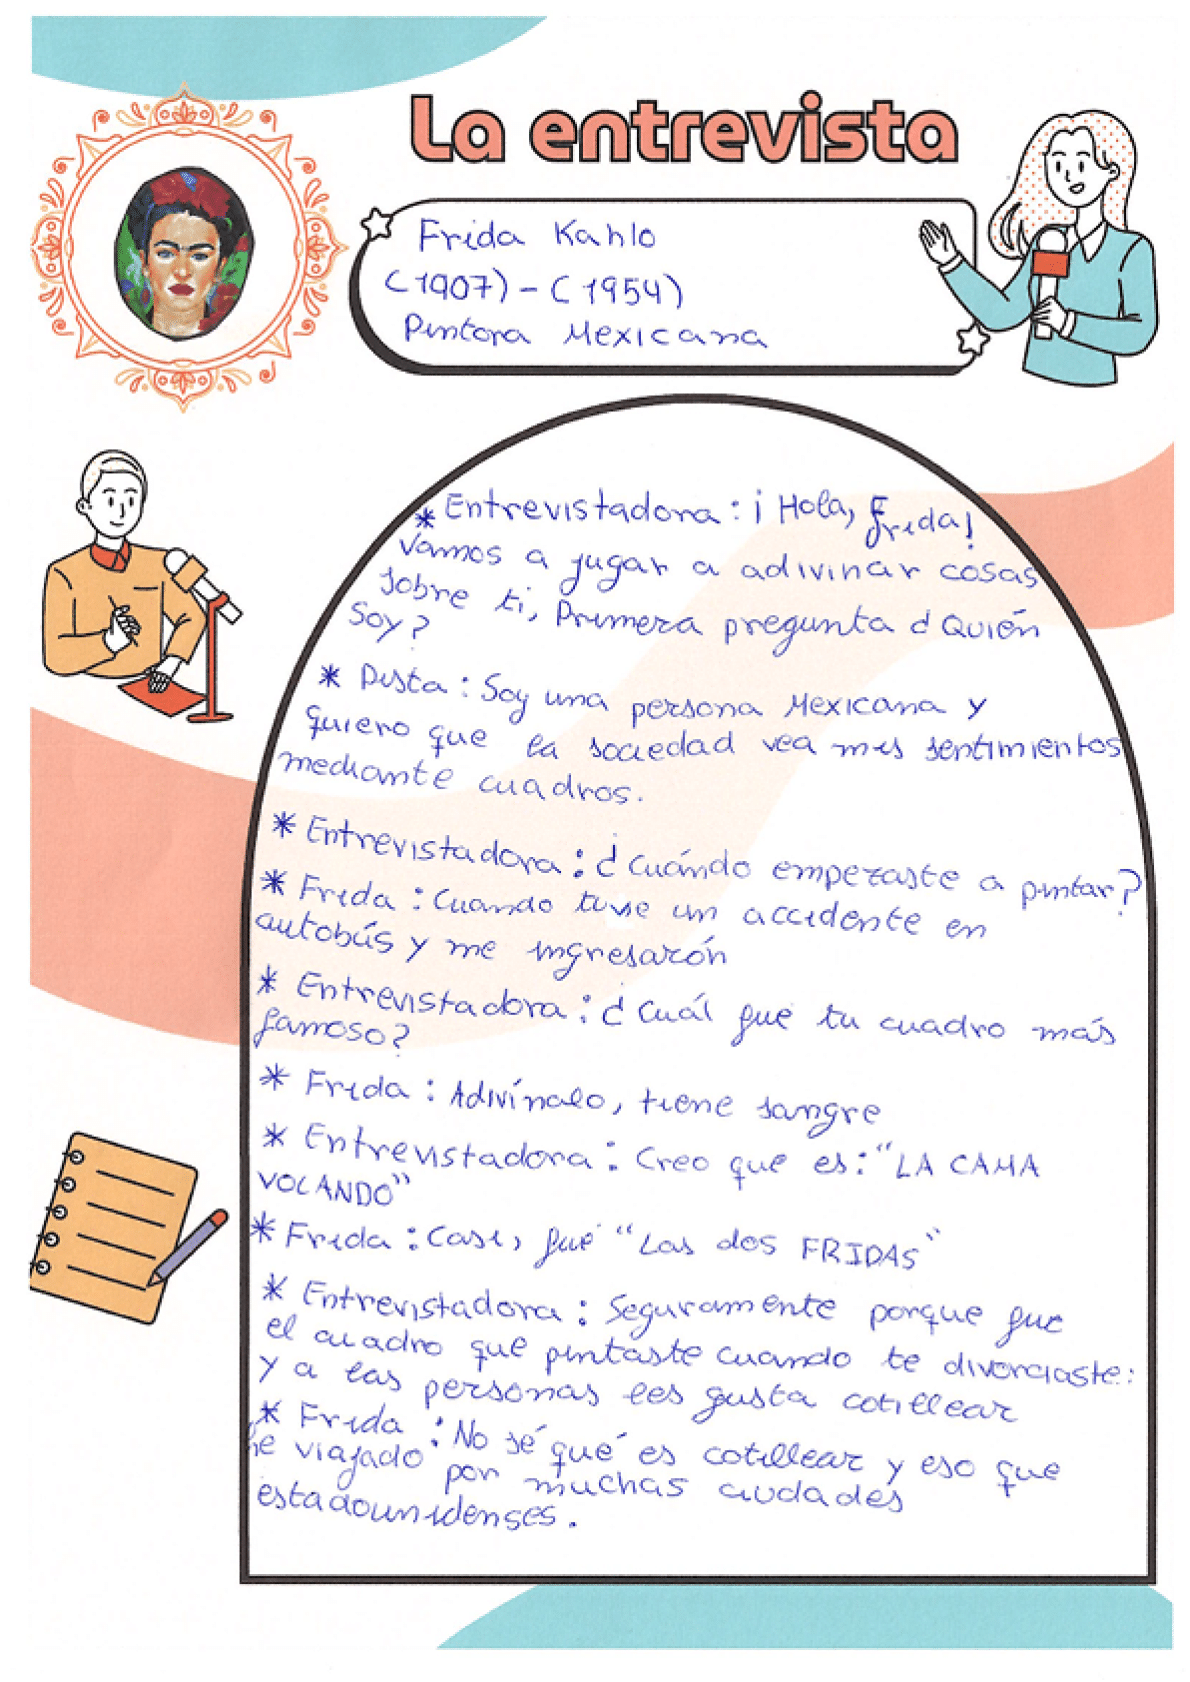 La entrevista
Frida Kahlo
(1907) - (1954)
Pintora Mexicana
* Entrevistadora: ¡Hola, Frida!
Vamos a jugar a adivinar cosas
sobre ti, Primera pregunta ¿Quién
soy?
* Pista: Soy una persona Mexicana y
quiero que la sociedad vea mis sentimientos
mediante cuadros.
* Entrevistadora: ¿Cuándo empezaste a pintar?
* Frida: Cuando tuve un accidente en
autobús y me ingresarón
* Entrevistadora: ¿Cuál fue tu cuadro más
famoso?
* Frida: Adivínalo, tiene sangre
* Entrevistadora: Creo que es: "LA CAMA
VOLANDO"
* Frida: Casi, fué "Las dos FRIDAS"
* Entrevistadora: Seguramente porque fue
el cuadro que pintaste cuando te divorciaste:
y a las personas les gusta cotillear
* Frida: No sé qué es cotillear y eso que
he viajado por muchas ciudades
estadounidenses.